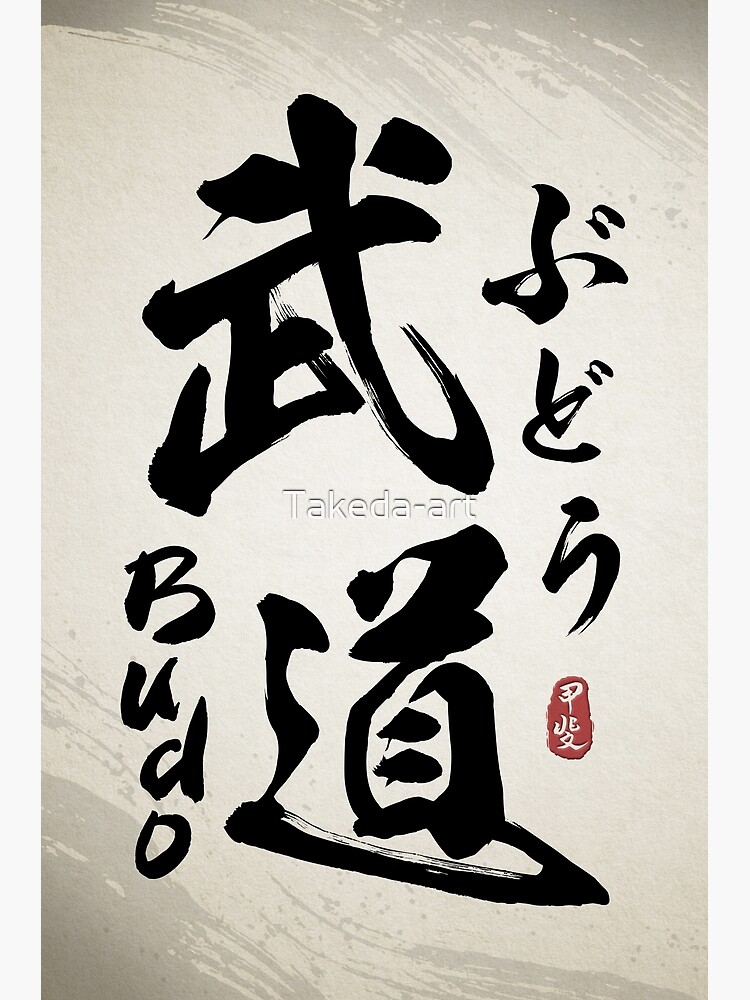 武道
ぶどう
Budo
甲斐
Takeda-art